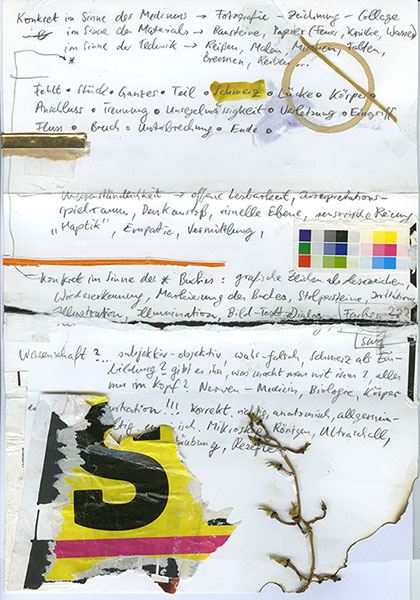 Konkret im Sinne des Mediums → Fotografie – Zeichnung – Collage
im Sinne des Materials → Papier (Feuer, Knicke, Wasser)
im Sinne der Technik → Reißen, Malen, Mischen, Falten,
Brennen, Reiben...
*
Fehlt • Stück • Ganzes • Teil • Schmerz • Lücke • Körper •
Anschluss • Trennung • Unregelmässigkeit • Verletzung • Eingriff
Fluss • Bruch • Unterbrechung • Ende •
→ offene Lesbarkeit, Interpretations-
spielraum, Denkanstoß, visuelle Ebene, sensorische Reizung
„Haptik", Empathie, Vermittlung,
– Konkret im Sinne des * Buches : grafische Zeichen als Lesezeichen,
Wiedererkennung, Markierung des Buches, Stolpersteine, Irritation
Illustration, Illumination, Bild-Text-Dialog, Farben ??
s/w
Wissenschaft ?... subjektiv-objektiv, wahr-falsch, Schmerz als Ein-
bildung? gibt es ihn, was macht man mit ihm? alles
nur im Kopf? Nerven – Medizin, Biologie, Körper
!!! korrekt, richtig, anatomisch, allgemein-
Röntgen, Ultraschall,
Rezepte
S